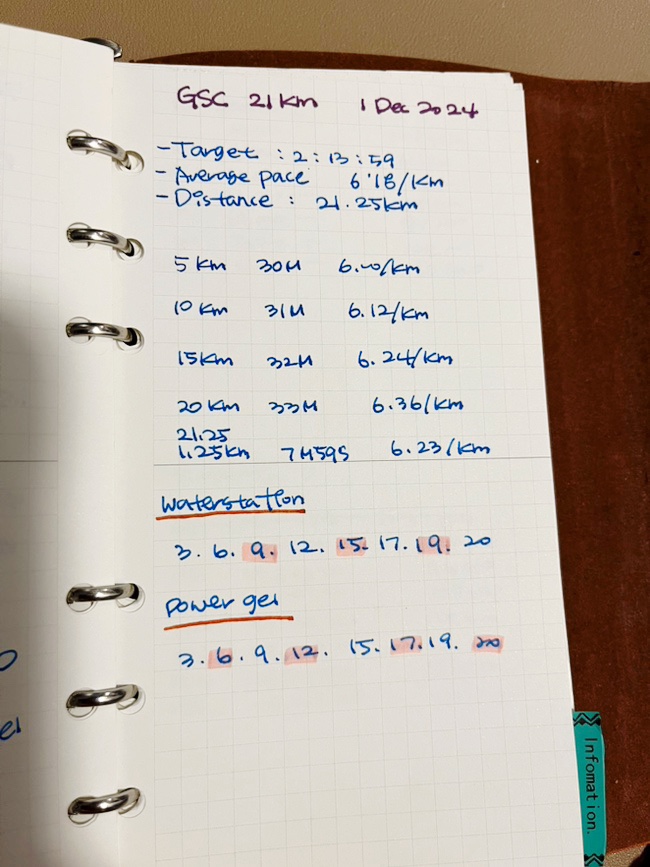 GSC 21Km 1 Dec 2024
- Target : 2 : 13 : 59
- Average pace 6'18/Km
- Distance : 21.25Km
5 Km 30M 6.00/km
10 Km 31M 6.12/km
15Km 32M 6.24/km
20 Km 33M 6.36/km
21.25
1.25km 7M59S 6.23/km
Waterstation
3. 6. 9. 12. 15. 17. 19. 20
Power gel
3. 6. 9. 12. 15. 17. 19. 20
Infomation.